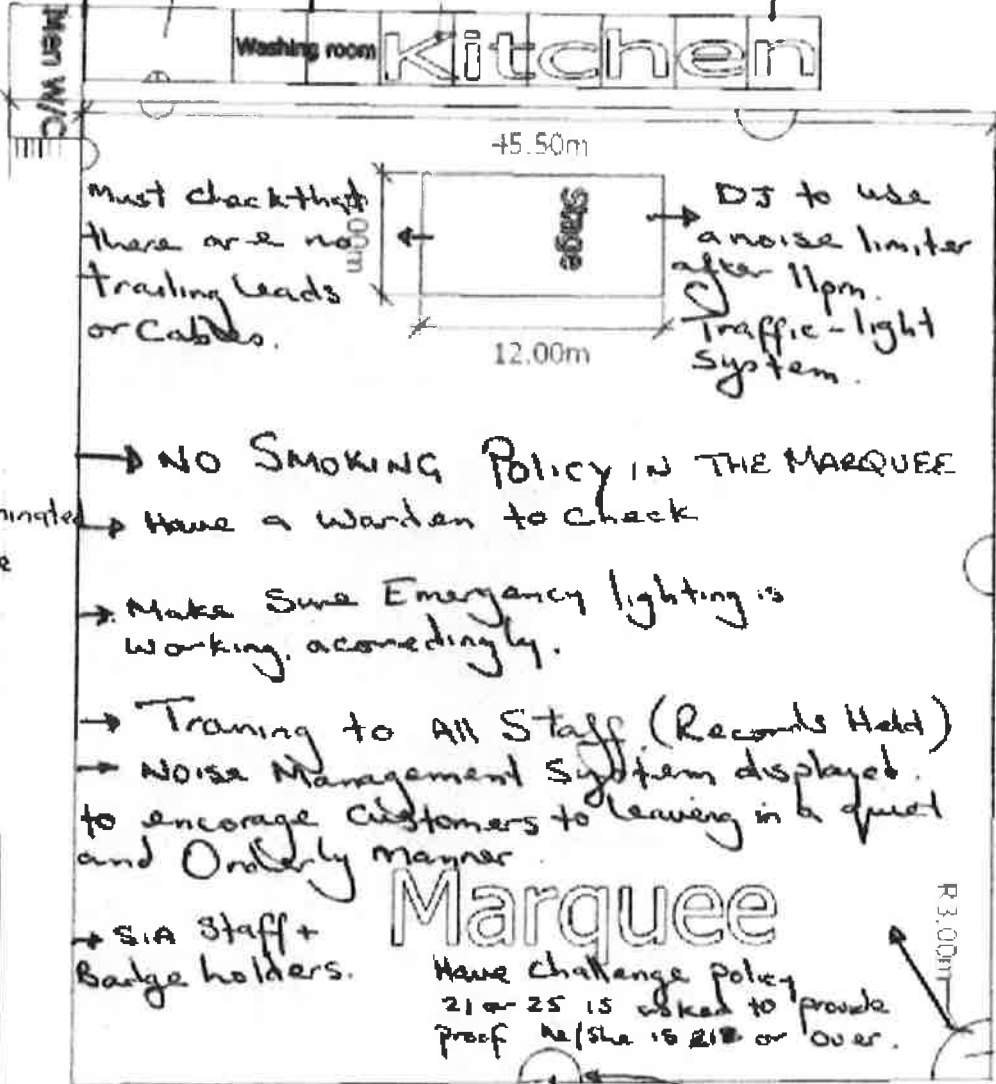 Men W/C
Washing room
Kitchen
45.50m
Must check that
there are no
trailing leads
or Cables.
00m
Stage
12.00m
DJ to use
a noise limiter
after 11pm.
Traffic-light
System.
NO SMOKING Policy IN THE MARQUEE
minated
Have a warden to check
e
Make Sure Emergency lighting is
working. acomedingly.
Traning to All Staff. (Records Held)
Noise Management System displayed.
to encorage Customers to leaving in a quiet
and Orderly manner.
Marquee
R3.00m
SIA Staff +
Badge holders.
Have challenge policy
21 or 25 is asked to provide
proof he/she is or over.